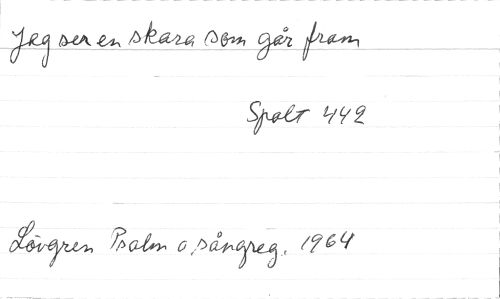 Jeg ser en skara som går fram
Spalt 442
Lövgren Psalm o sångreg. 1964